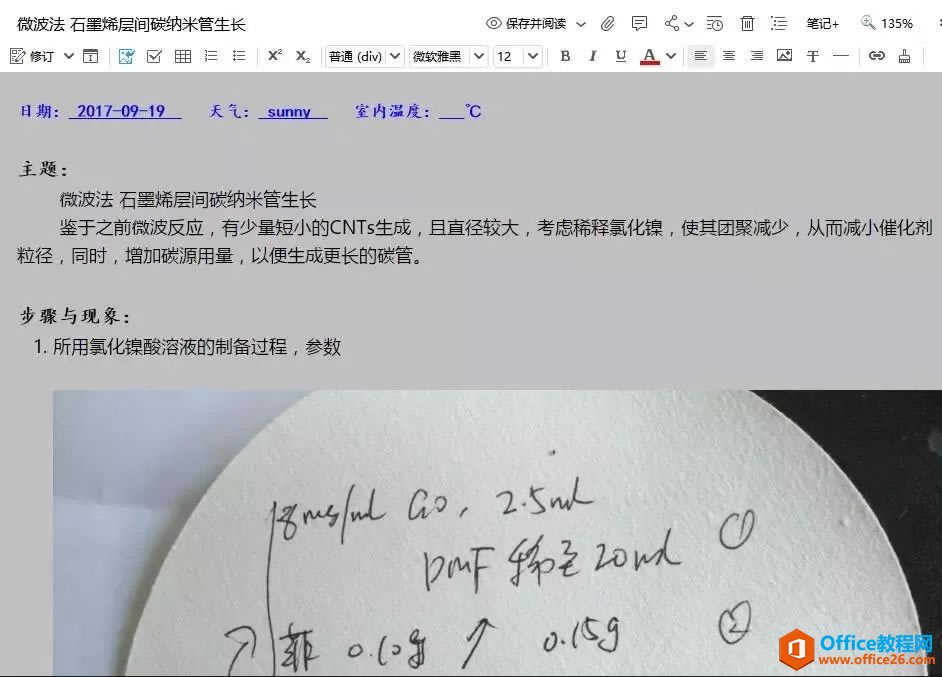 微波法 石墨烯层间碳纳米管生长
保存并阅读 笔记+ 135%
修订 普通 (div) 微软雅黑 12 B I U A
日期: 2017-09-19 天气: sunny 室内温度: ___℃
主题:
微波法 石墨烯层间碳纳米管生长
鉴于之前微波反应，有少量短小的CNTs生成，且直径较大，考虑稀释氯化镍，使其团聚减少，从而减小催化剂
粒径，同时，增加碳源用量，以便生成更长的碳管。
步骤与现象:
1. 所用氯化镍酸溶液的制备过程，参数
8mg/ml Go, 2.5ml
DMF 稀至 20ml ①
菲 0.10g ↗ 0.15g ②
Office教程网
www.office26.com